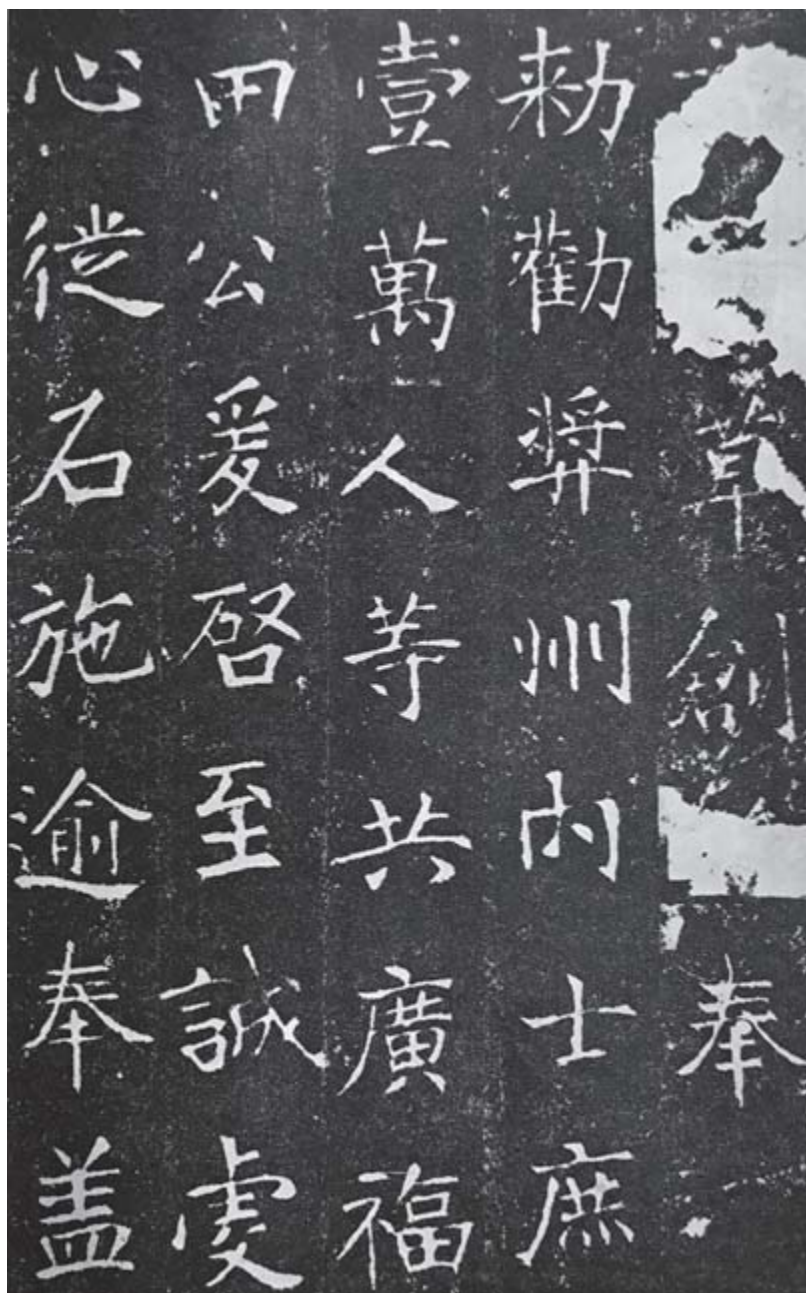 草創奉
勑勸奬州内士庶
壹萬人等共廣福
田公爰啓至誠虔
心徙石施逾奉盖